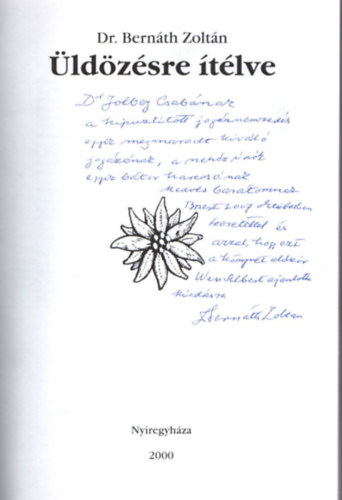 Dr. Bernáth Zoltán
Üldözésre ítélve
Dr Csabának
a kipusztított jogásznemzedék
egyik megmaradt kiváló
jogászának, a nehéz idők
egyik bátor harcosának
kedves barátomnak
2007
szeretettel és
azzal, hogy ezt
a könyvet először
Wass Albert ajánlotta
kiadásra
Bernáth Zoltán
Nyíregyháza
2000